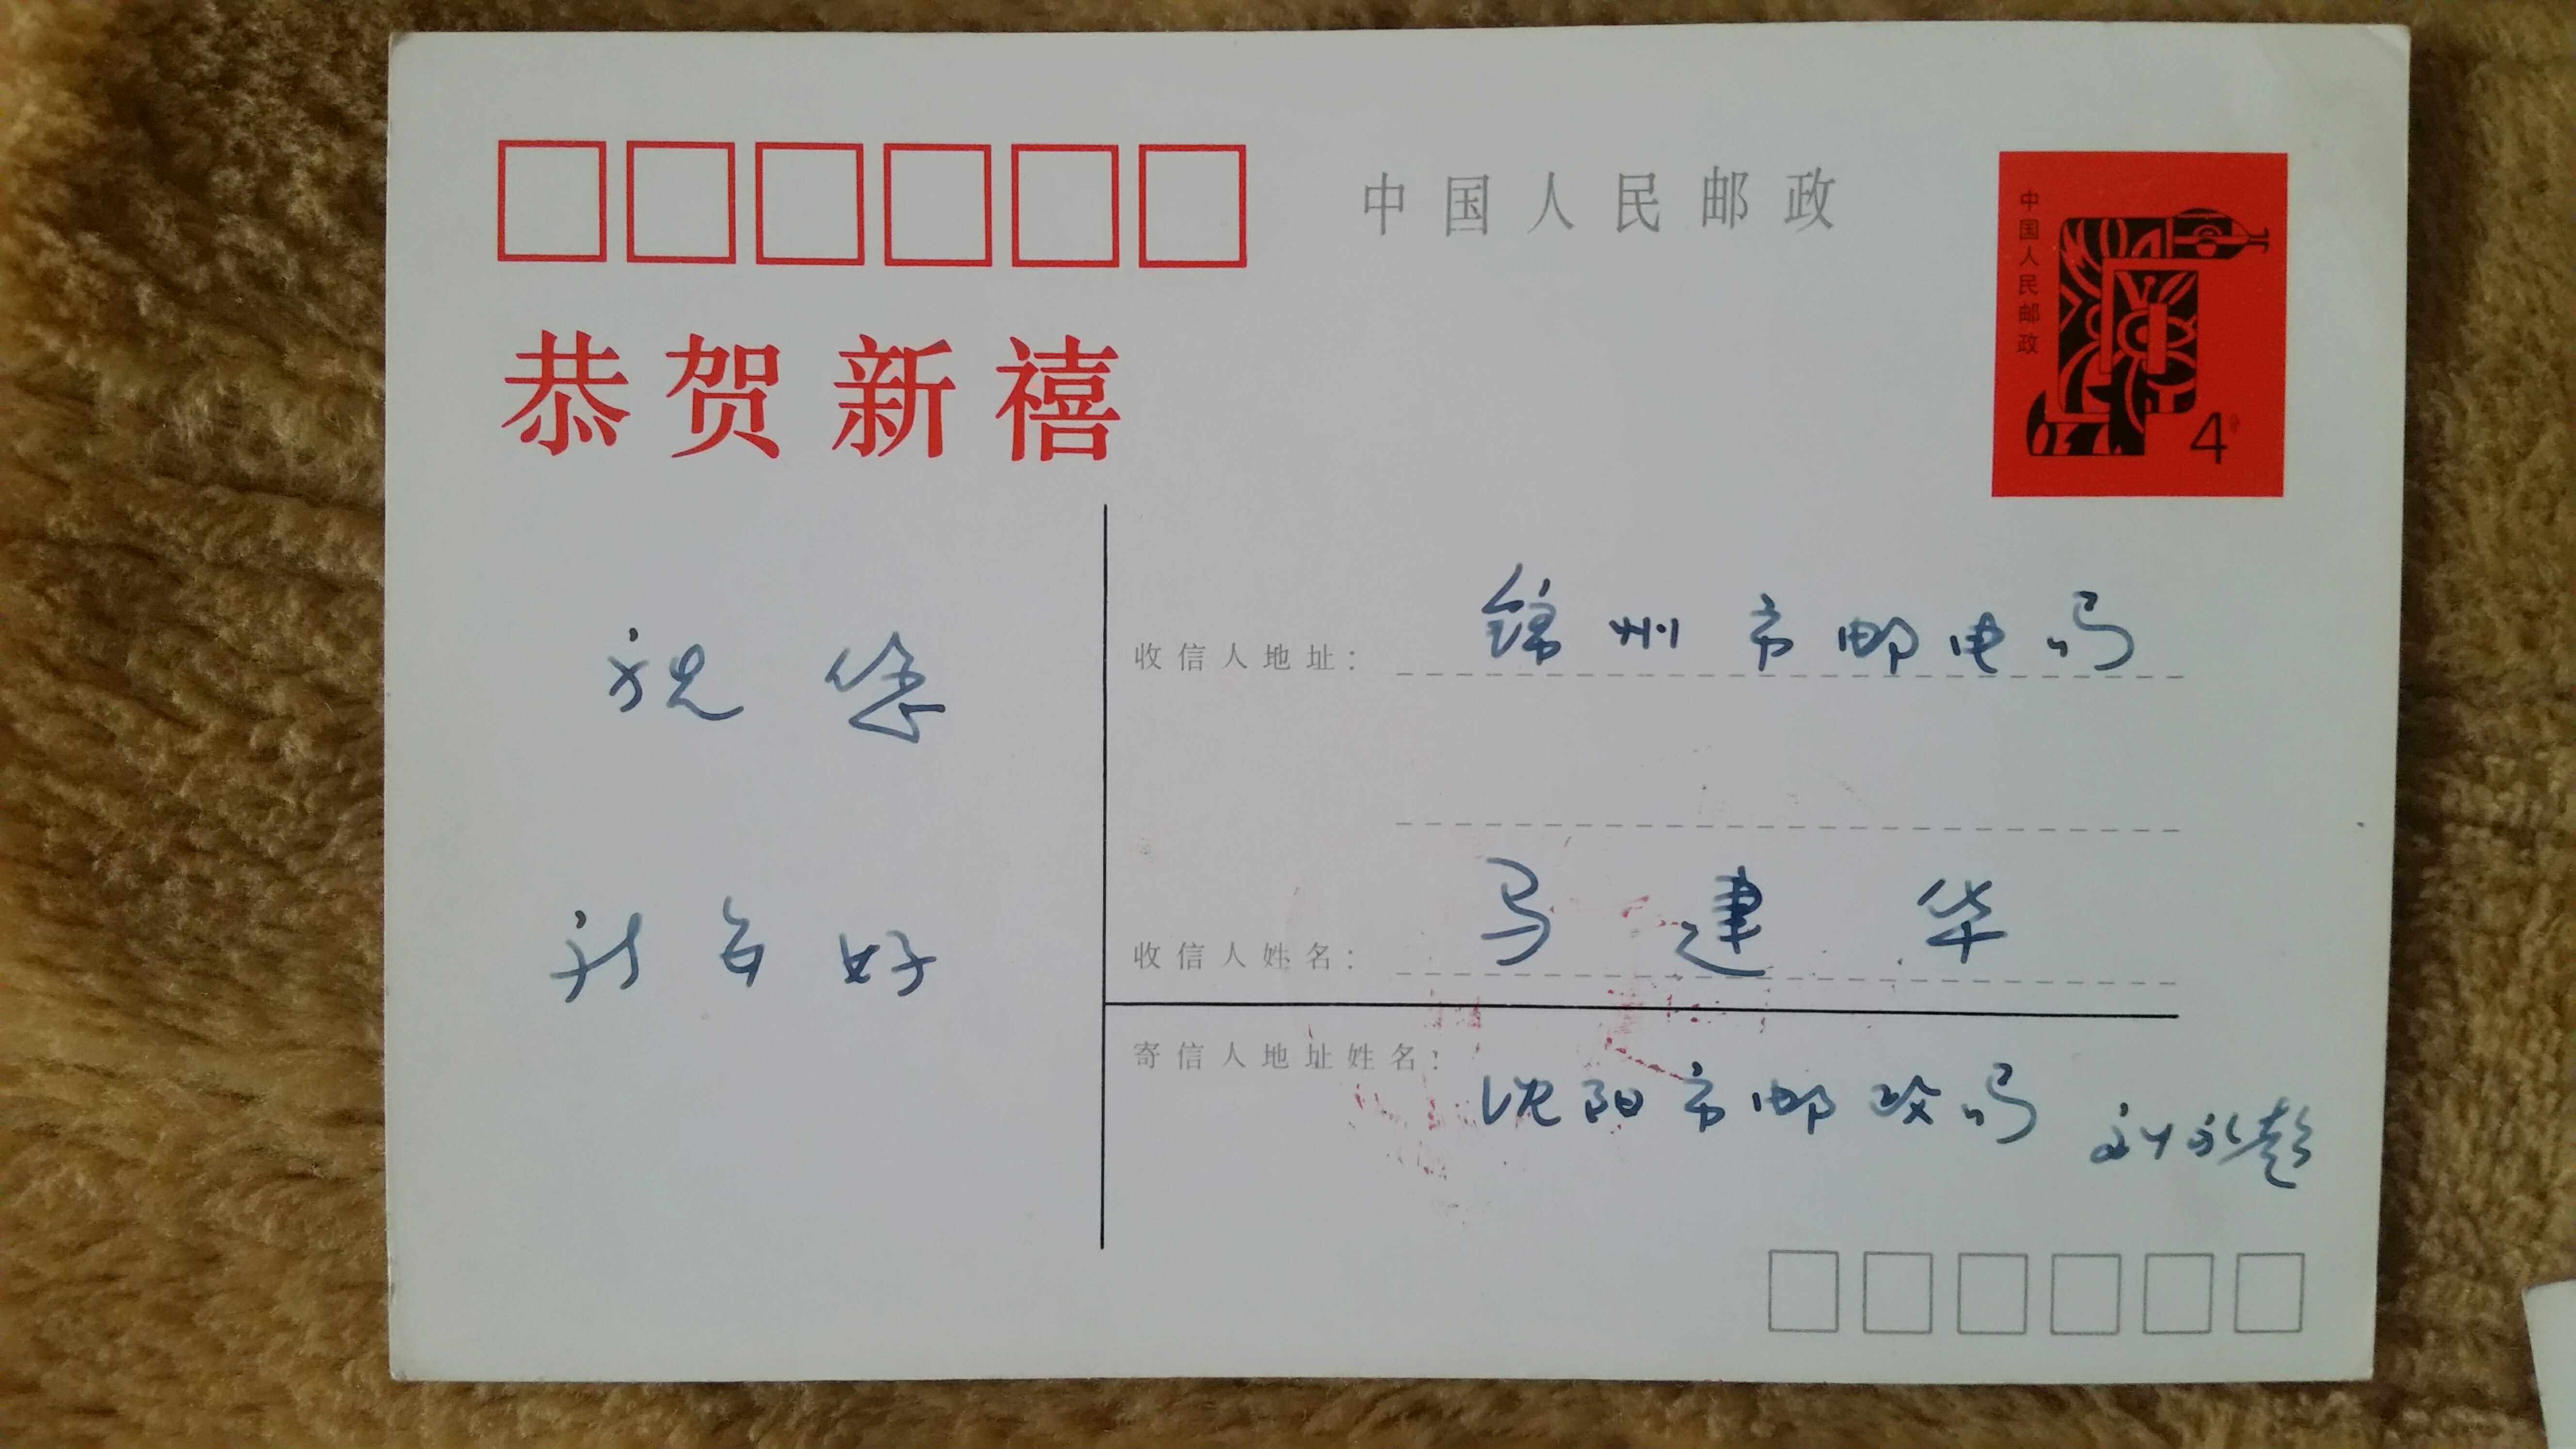 中国人民邮政
中国人民邮政
4分
恭贺新禧
祝您
新年好
收信人地址：锦州市邮电局
收信人姓名：马建华
寄信人地址姓名：沈阳市邮政局 刘永彭